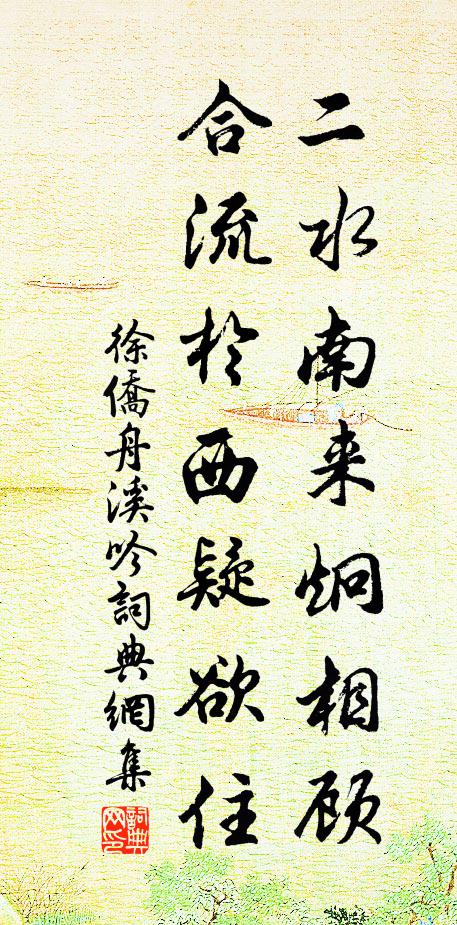 二水南来炯相顾
合流於西疑欲住
徐僑舟溪吟詞典網集
詞典網印